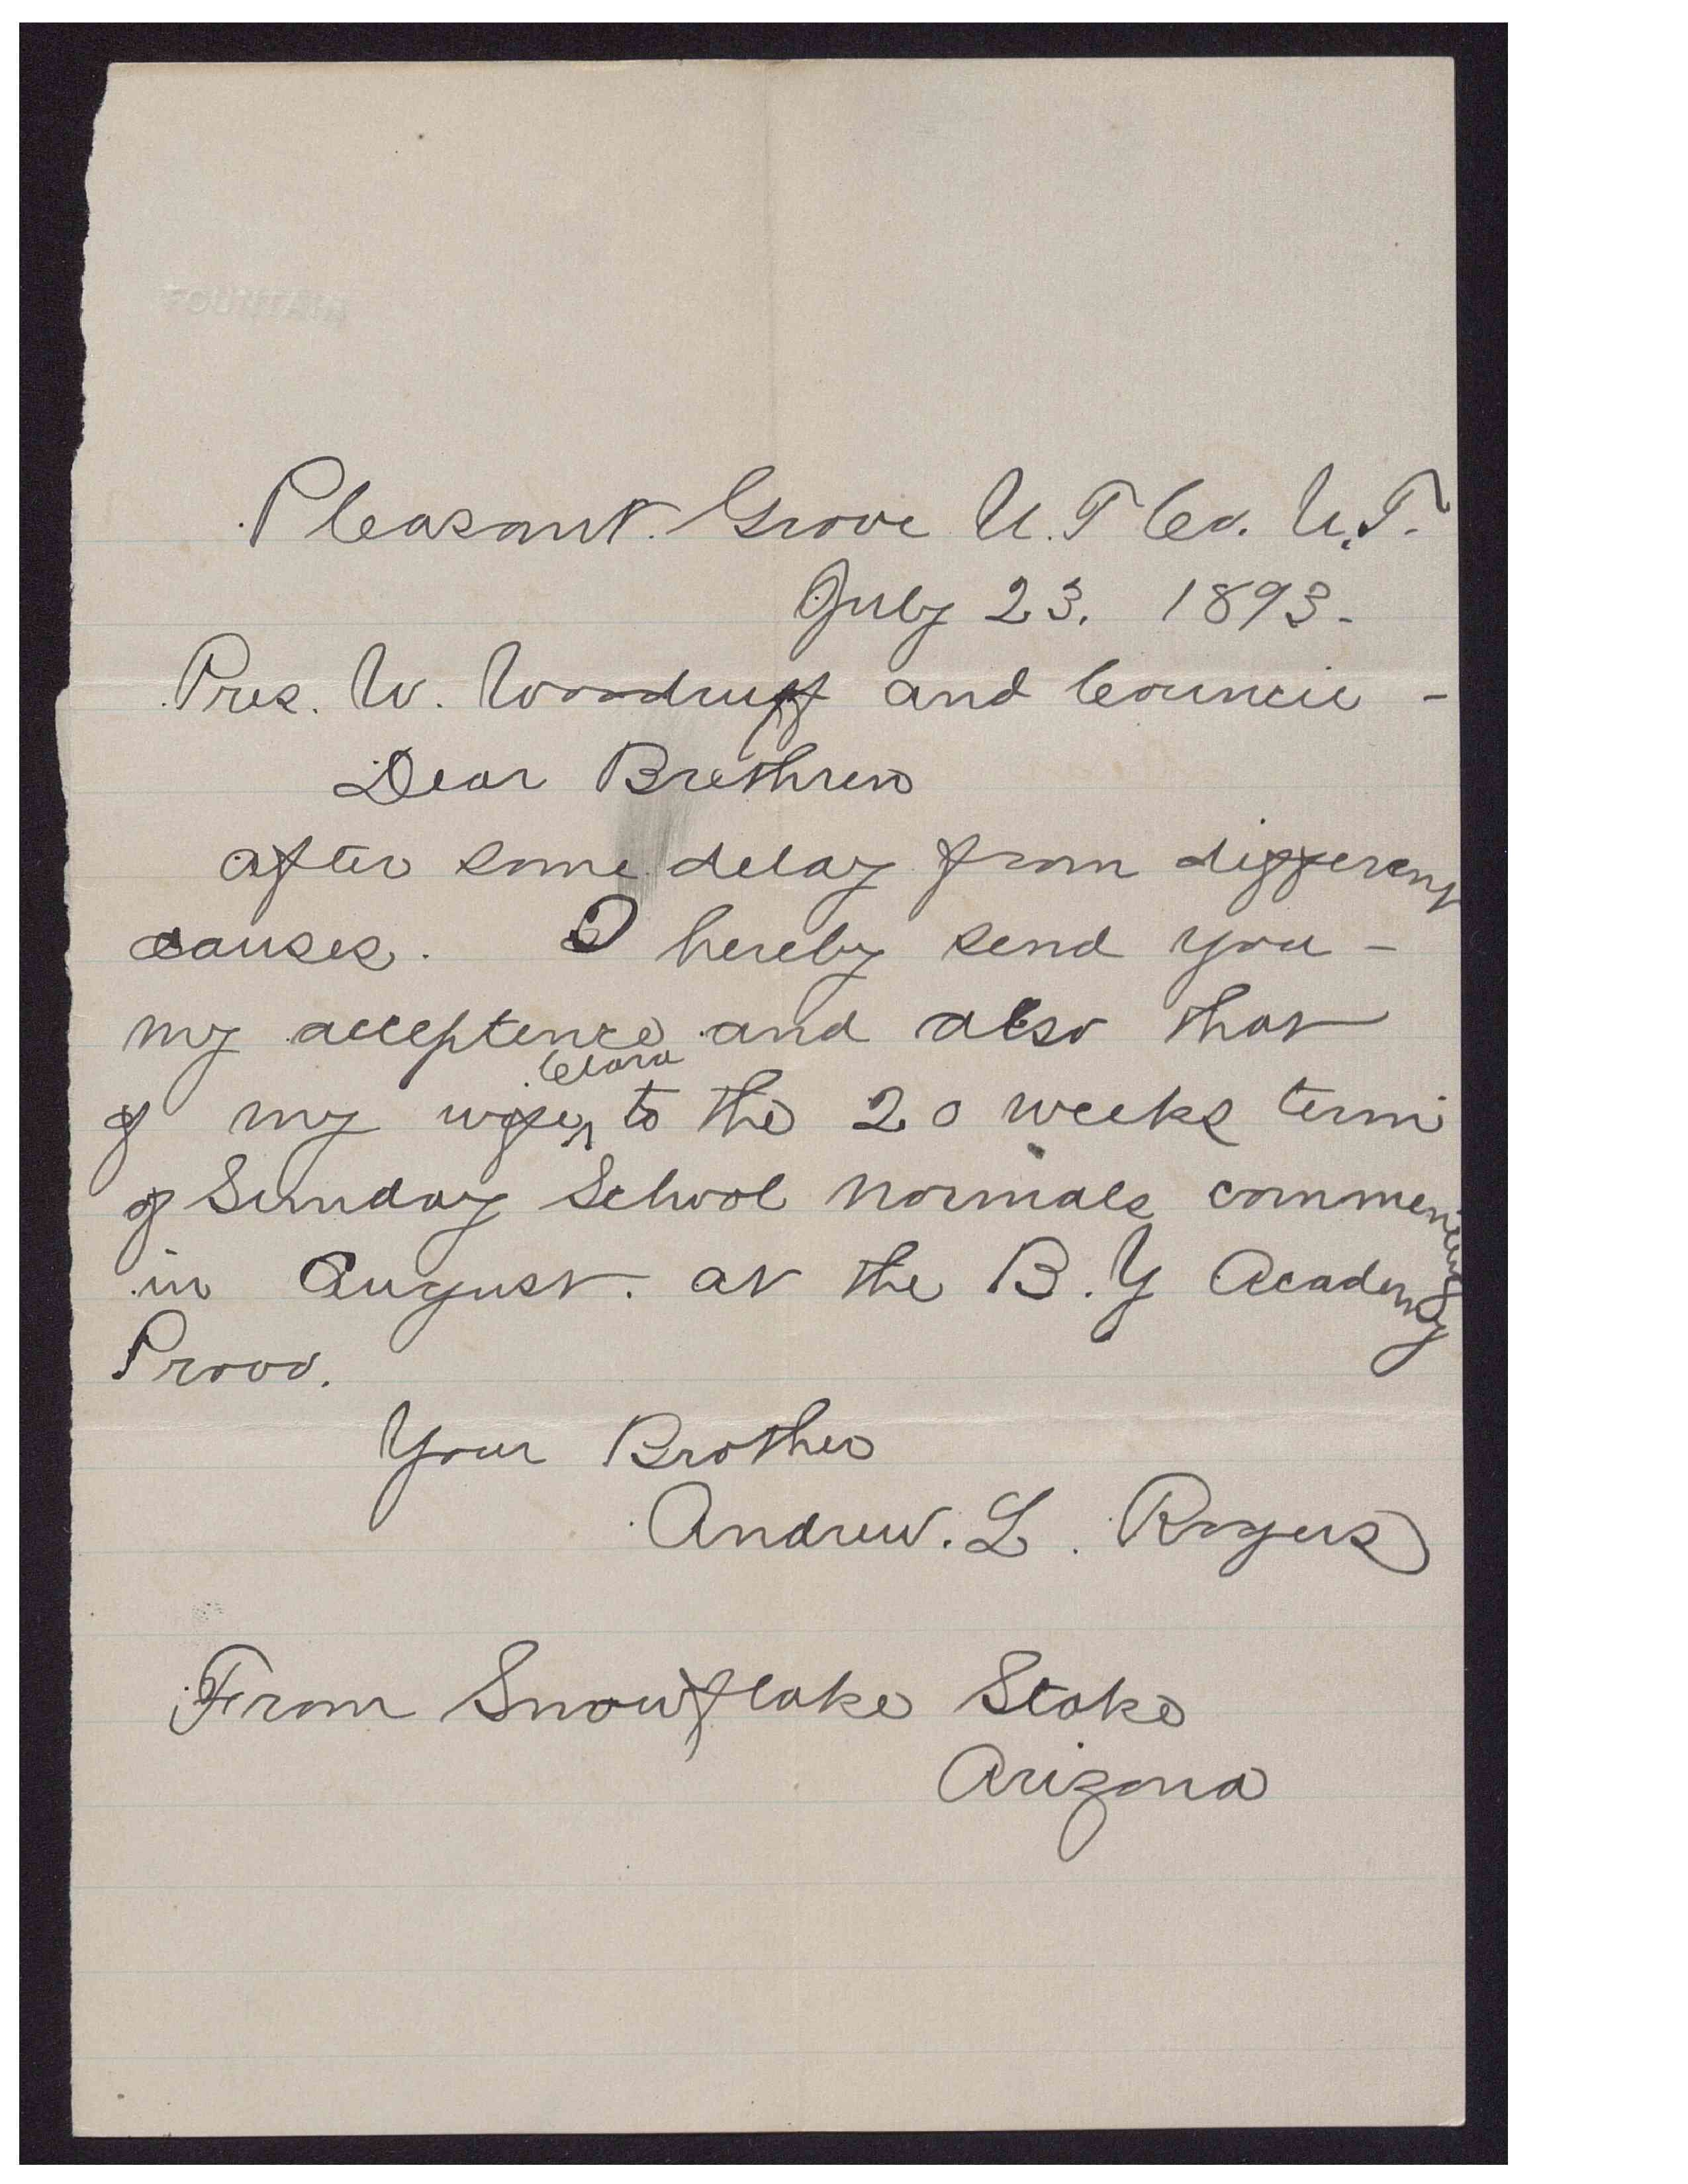 FOUNTAIN
Pleasant Grove U.T Co. U.T.
July 23. 1893.
Pres. W. Woodruff and Council -
Dear Brethren
after some delay from different
causes. I hereby send you -
my acceptence and also that
Clara
of my wife, to the 20 weeks term
of Sunday School Normals commencing
in August. at the B.Y Academy
Provo.
Your Brother
Andrew. L. Rogers
From Snowflake Stake
Arizona